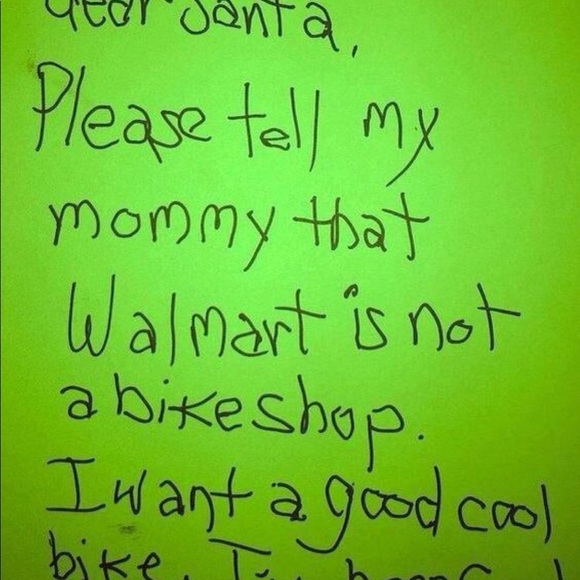 dear Santa,
Please tell my
mommy that
Walmart is not
a bike shop.
I want a good cool
bike.